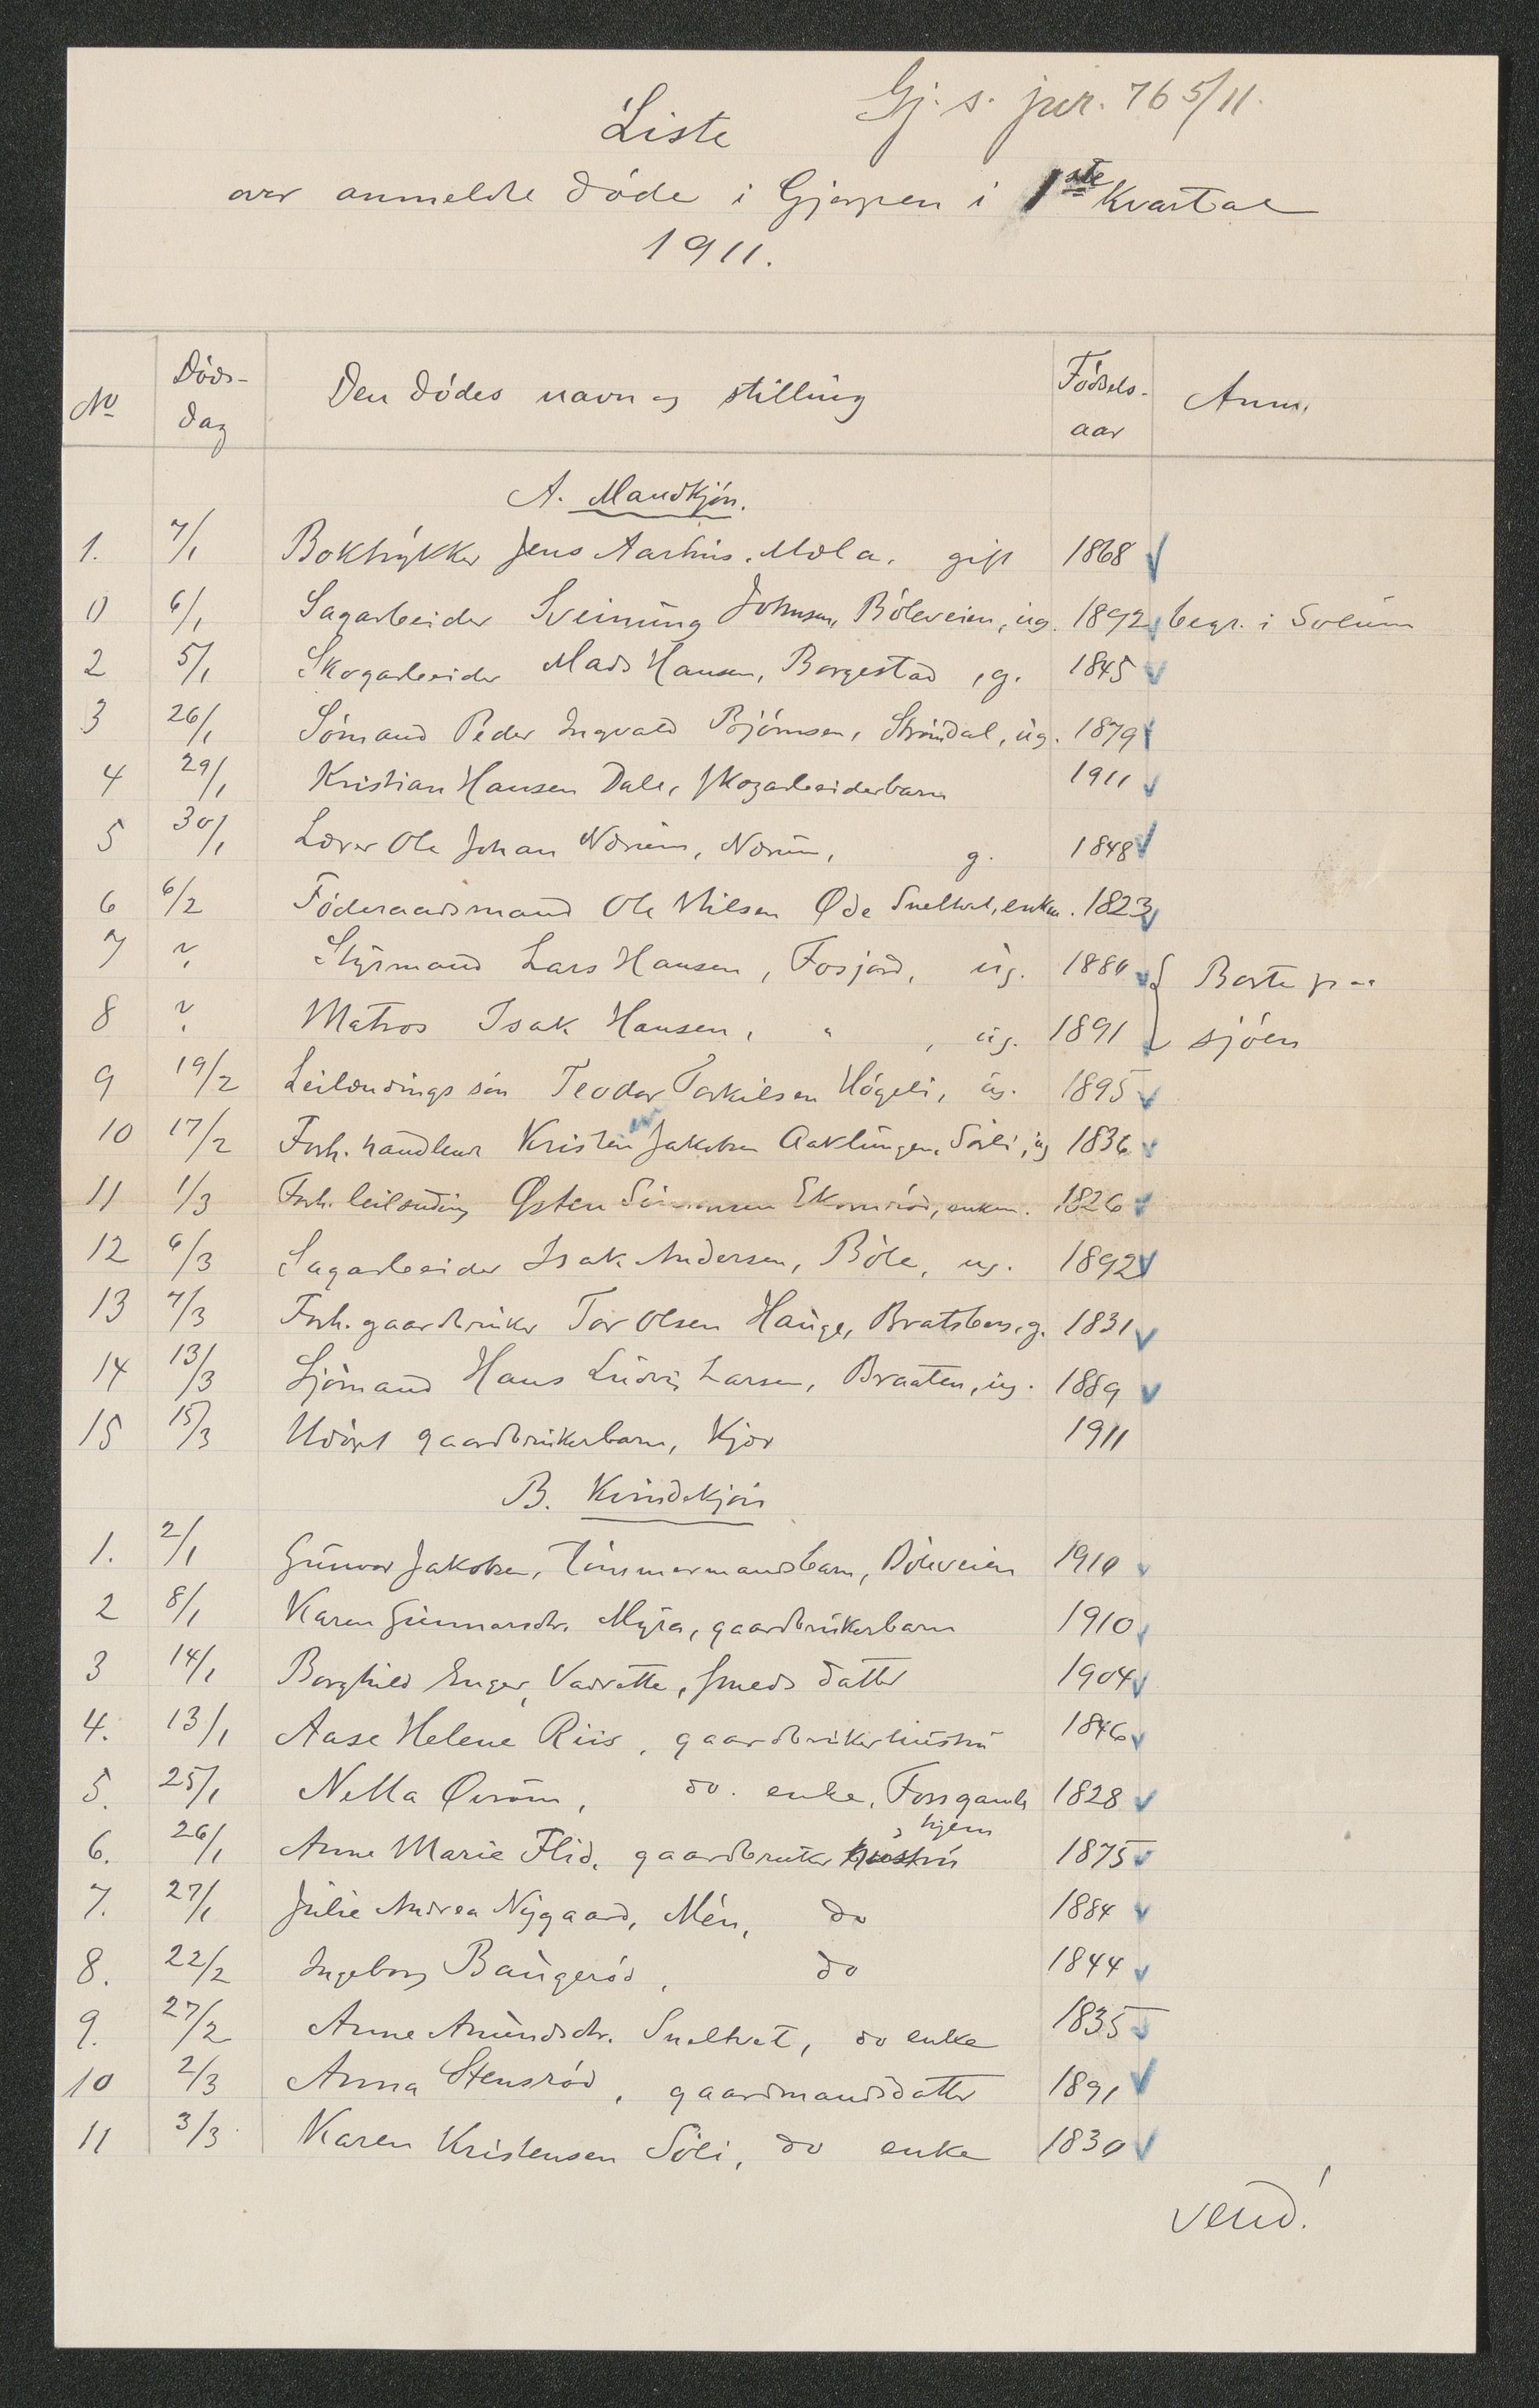 Gj. s. jnr. 765/11.
Liste
over anmeldte døde i Gjerpen i 1ste Kvartal
1911.
No Døds-dag Den dødes navn og stilling Fødsels-aar Anm.
A. Mandkjøn.
1. 7/1 Boktrykker Jens Aarhus. Mæla. gift 1868
0 6/1 Sagarbeider Sveinung Johnsen, Bøleveien, ug. 1892 begr. i Solum
2 5/1 Skogarbeider Mads Hansen, Borgestad, g. 1845
3 26/1 Sømand Peder Ingvald Bjørnsen, Strømdal, ug. 1879
4 29/1 Kristian Hansen Dale, skogarbeiderbarn 1911
5 30/1 Lærer Ole Johan Nærum, Nærum, g. 1848
6 6/2 Føderaadsmand Ole Nilsen Øde Sneltvet, enkem. 1823
7 ? Styrmand Lars Hansen, Fosjord, ug. 1880 { Borte paa
8 ? Matros Isak Hansen, " , ug. 1891 sjøen
9 19/2 Leilændings søn Teodor Torkilsen Høgeli, ug. 1895
10 17/2 Forh. handlende Kristen Jakobsen Aaklungen, Søli, ug 1836
11 1/3 Forh. leilænding Østen Simonsen Ekornrød, enkem. 1826
12 6/3 Sagarbeider Isak Andersen, Bøle, ug. 1892
13 7/3 Forh. gaardbruker Tor Olsen Hauge, Bratsberg, g. 1831
14 13/3 Sjømand Hans Ludvig Larsen, Braaten, ug. 1889
15 15/3 Udøpt gaardbrukerbarn, Kjær 1911
B. Kvindekjøn
1. 2/1 Gunvor Jakobsen, Tømmermandsbarn, Bøleveien 1910
2 8/1 Karen Gunnarsdtr. Myra, gaardbrukerbarn 1910
3 14/1 Borghild Enger, Vadrette, smeds datter 1904
4. 13/1 Aase Helene Riis, gaardbrukerhustru 1846
5. 25/1 Nella Øverum, do. enke, Foss gamle 1828
hjem
6. 26/1 Anne Marie Flid, gaardbruker hustru 1875
7. 27/1 Julie Andrea Nygaard, Mén, do 1884
8. 22/2 Ingeborg Baugerød, do 1844
9. 27/2 Anne Amundsdtr. Sneltvet, do enke 1835
10 2/3 Anna Stensrød, gaardmandsdatter 1891
11 3/3 Karen Kristensen Søli, do enke 1830
vend!